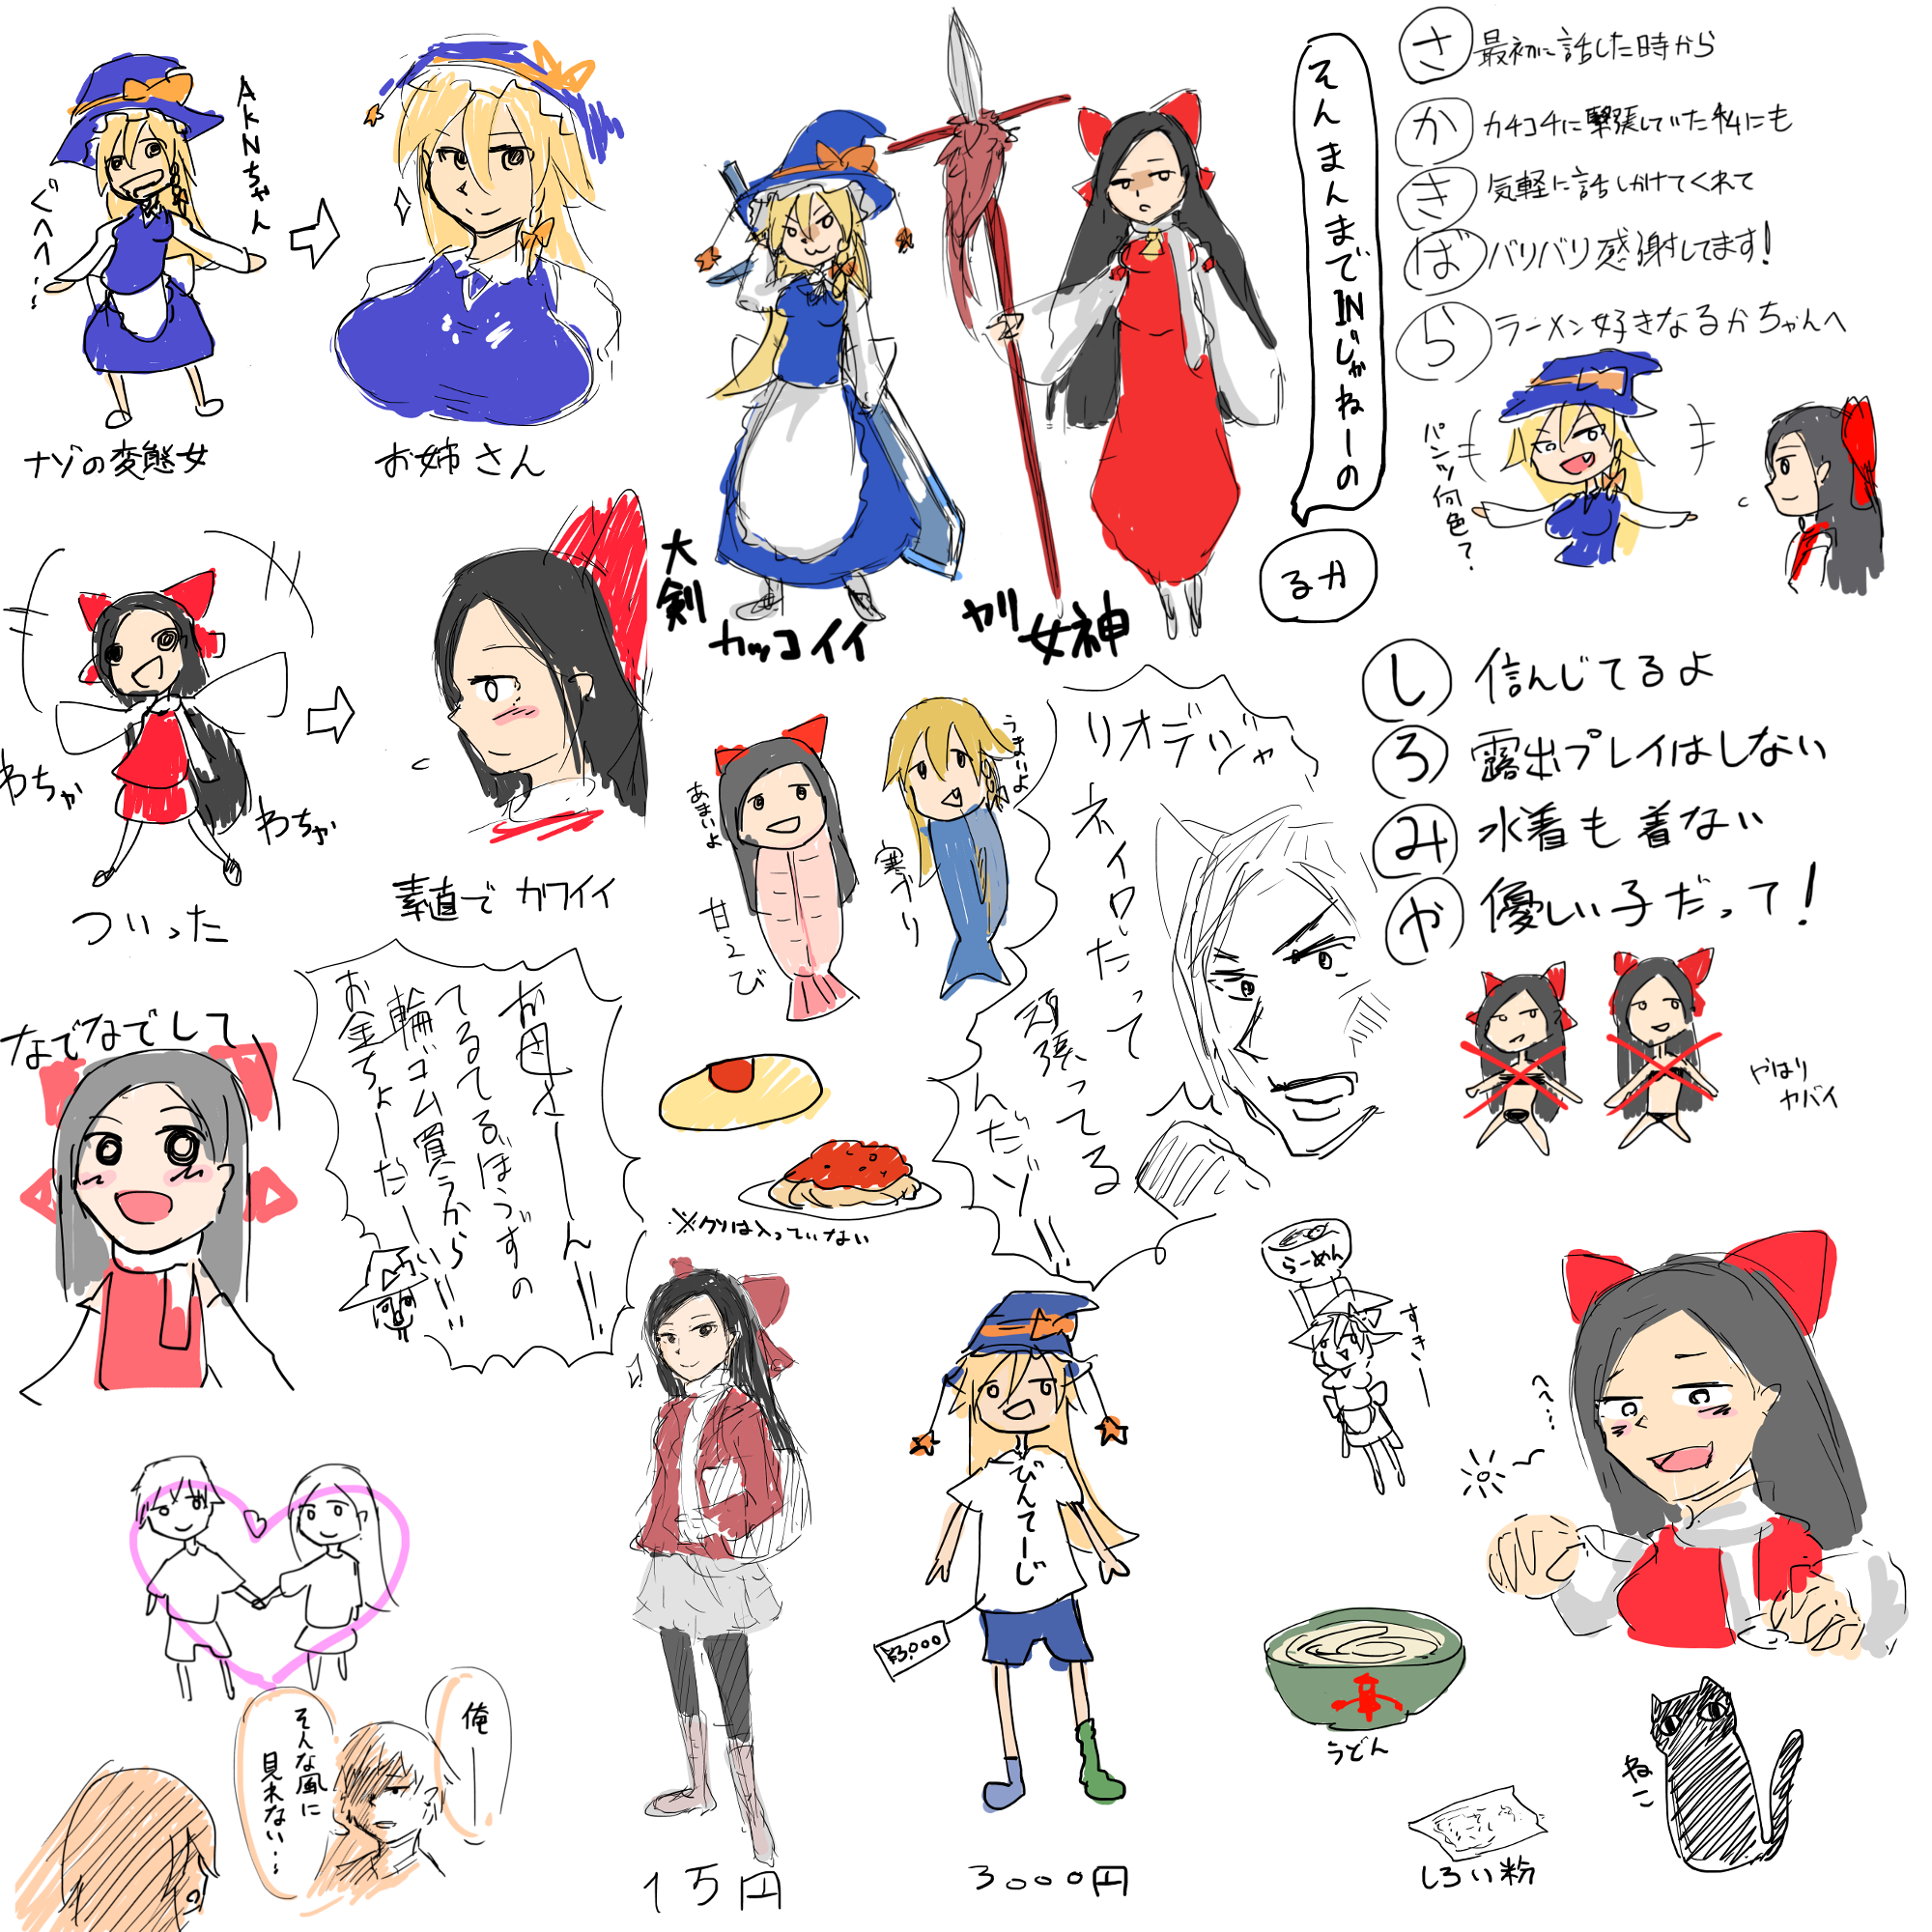 AkNちゃん
ぐへへ…
ナゾの変態女
お姉さん
大剣
カッコイイ
ヤリ
女神
そんまんまでINじゃねーの
るか
さ 最初に話した時から
か カチコチに緊張していた私にも
き 気軽に話しかけてくれて
ば バリバリ感謝してます!
ら ラーメン好きなるかちゃんへ
パンツ何色?
わちゃ
わちゃ
ついった
素直でカワイイ
あまいよ
甘えび
うまいよ
寒ブリ
リオデジャ
ネイロだって
頑張ってる
んだゾ!!
し 信んじてるよ
ろ 露出プレイはしない
み 水着も着ない
や 優しい子だって!
やはり
ヤバイ
なでなでして
お母さーーん!!
てるてるぼうずの
輪ゴム買うから!!!
お金ちょーだーい
※クリは入っていない
らーめん
すきー
へへ…
びんてーじ
¥3,000
俺――
そんな風に
見れない…
1万円
3000円
うどん
しろい粉
ねこ